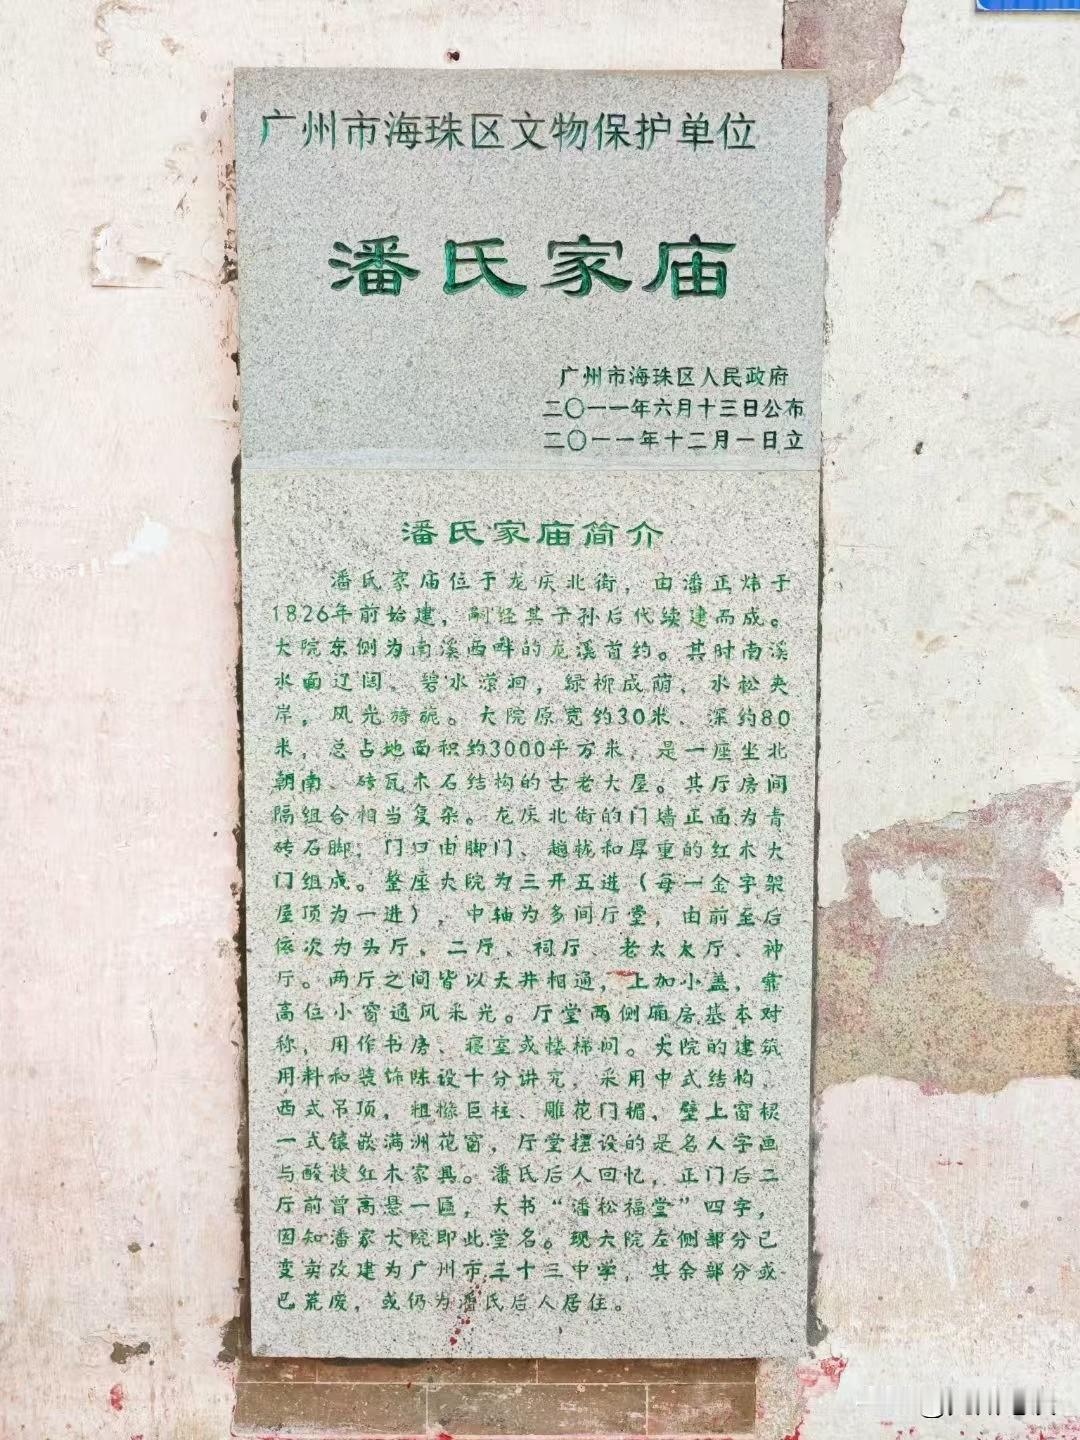 广州市海珠区文物保护单位
潘氏家庙
广州市海珠区人民政府
二〇一一年六月十三日公布
二〇一一年十二月一日立
潘氏家庙简介
潘氏家庙位于龙庆北街，由潘正炜于
1826年前始建，嗣经其子孙后代续建而成。
大院东侧为南溪西畔的龙溪首约。其时南溪
水面辽阔、碧水潆洄，绿柳成荫、水松夹
岸，风光旖旎。大院原宽约30米、深约80
米，总占地面积约3000平方米，是一座坐北
朝南、砖瓦木石结构的古老大屋。其厅房间
隔组合相当复杂。龙庆北街的门墙正面为青
砖石脚，门口由脚门、趟栊和厚重的红木大
门组成。整座大院为三开五进（每一金字架
屋顶为一进），中轴为多间厅堂，由前至后
依次为头厅、二厅、祠厅、老太太厅、神
厅。两厅之间皆以天井相通，上加小盖，靠
高位小窗通风采光。厅堂两侧厢房基本对
称，用作书房、寝室或楼梯间。大院的建筑
用料和装饰陈设十分讲究，采用中式结构、
西式吊顶，粗椽巨柱、雕花门楣，壁上窗棂
一式镶嵌满洲花窗，厅堂摆设的是名人字画
与酸枝红木家具。潘氏后人回忆，正门后二
厅前曾高悬一匾，大书“潘松福堂”四字，
因知潘家大院即此堂名。现大院左侧部分已
变卖改建为广州市三十三中学，其余部分或
已荒废，或仍为潘氏后人居住。